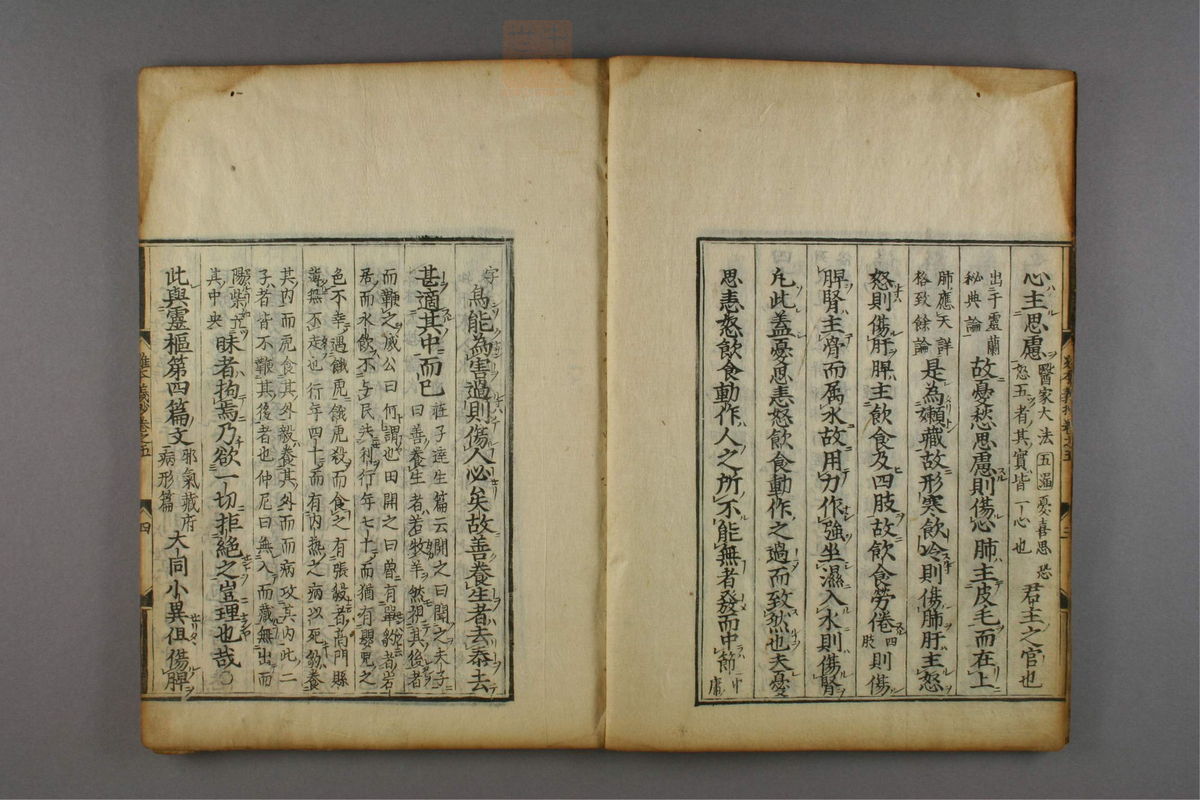 心主思慮 醫家大法五過憂喜思恐怒五者其實皆一心也 君主之官也
出于靈蘭秘典論 故憂愁思慮則傷心肺主皮毛而在上
肺應天詳格致餘論 是為嫩藏故形寒飲冷則傷肺肝主怒
怒則傷肝脾主飲食及四肢故飲食勞倦四肢則傷
脾腎主骨而属水故用力作強坐濕入水則傷腎
凢此蓋憂思恚怒飲食動作之過而致然也夫憂
思恚怒飲食動作人之所不能無者發而中節中庸
字烏能為害過則傷人必矣故善養生者去泰去
甚適其中而已 莊子達生篇云開之曰聞之夫子曰善養生者若牧羊然視其後者
而鞭之威公曰何謂也田開之曰魯有單豹者岩
居而水飲不与民共利行年七十而猶有嬰兒之
色不幸遇餓虎餓虎殺而食之有張毅者高門縣
薄無不走也行年四十而有内熱之病以死豹養
其内而虎食其外毅養其外而病攻其内此二
子者皆不鞭其後者也仲尼曰無入而藏無出而
陽柴立其中央 昧者拘焉乃欲一切拒絶之豈理也哉○
此與靈樞第四篇文邪氣藏府病形篇 大同小異但傷脾
難経義抄卷之五
四
三